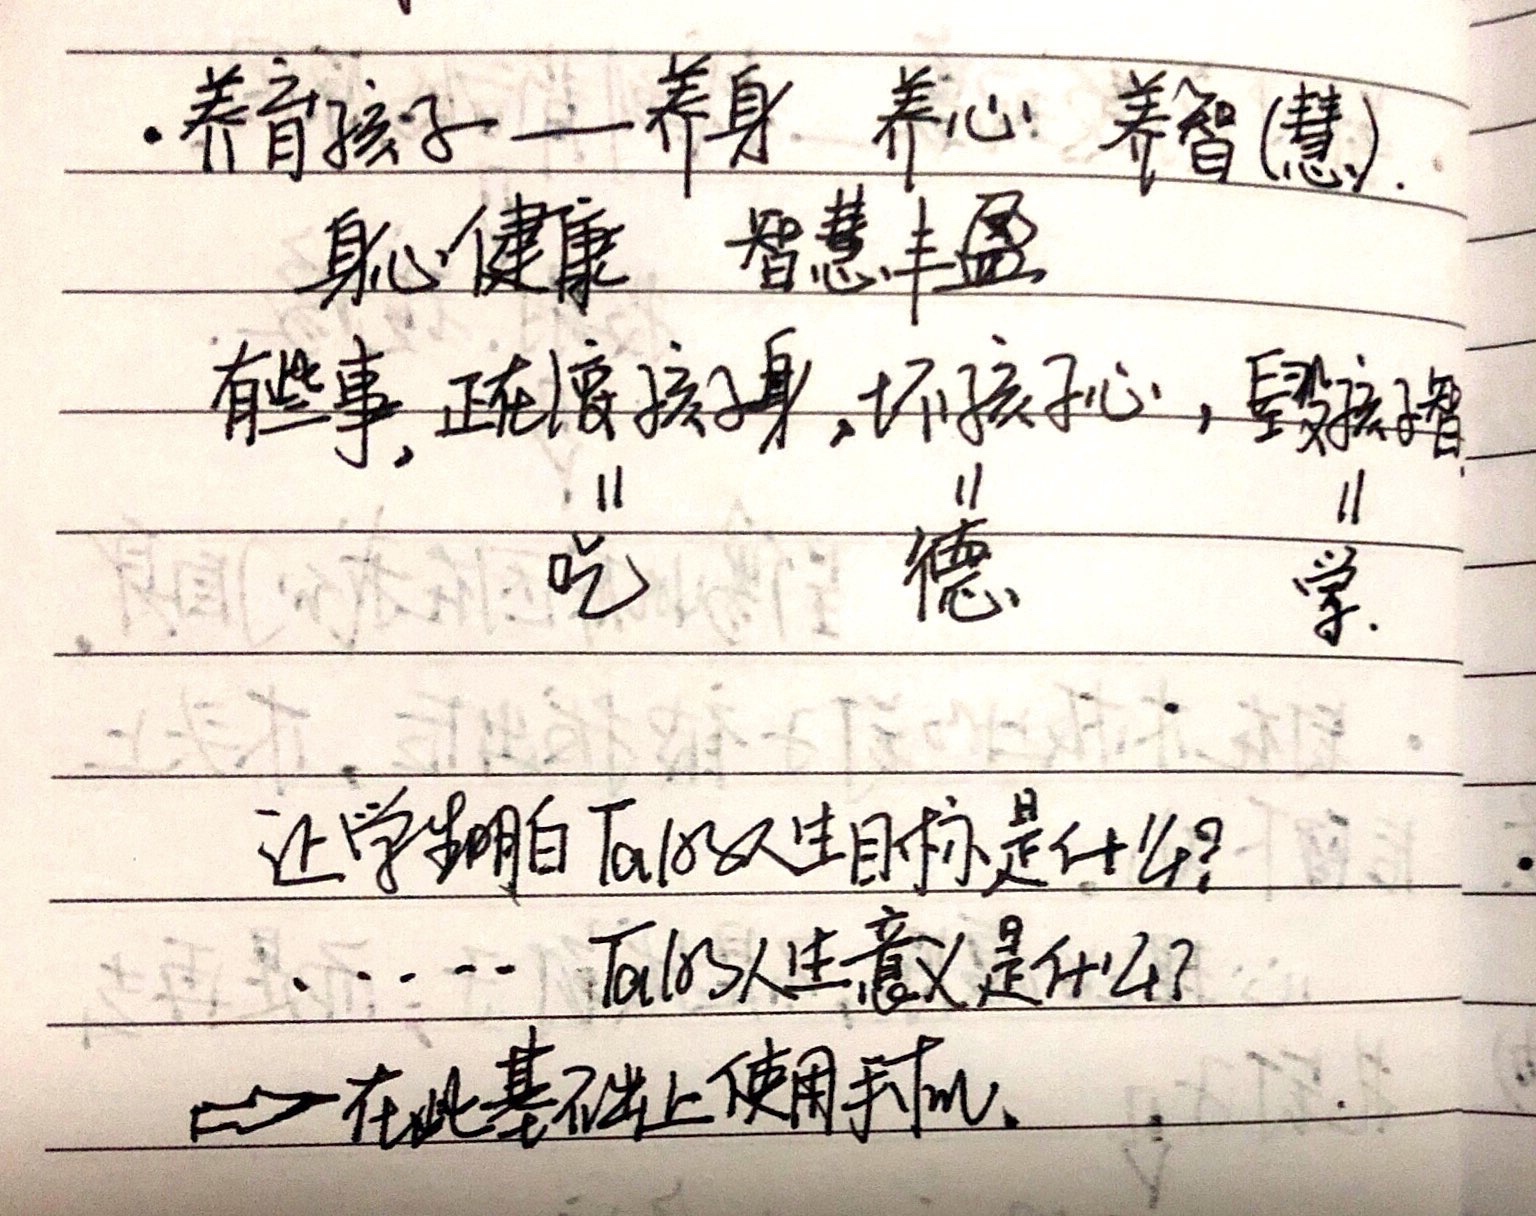 ·养育孩子——养身 养心 养智(慧).
身心健康 智慧丰盈
有些事,正在害孩子身,坏孩子心,毁孩子智.
= = =
吃 德 学.
让学生明白Ta的人生目标是什么?
...... Ta的人生意义是什么?
⇒在此基础上使用手机.